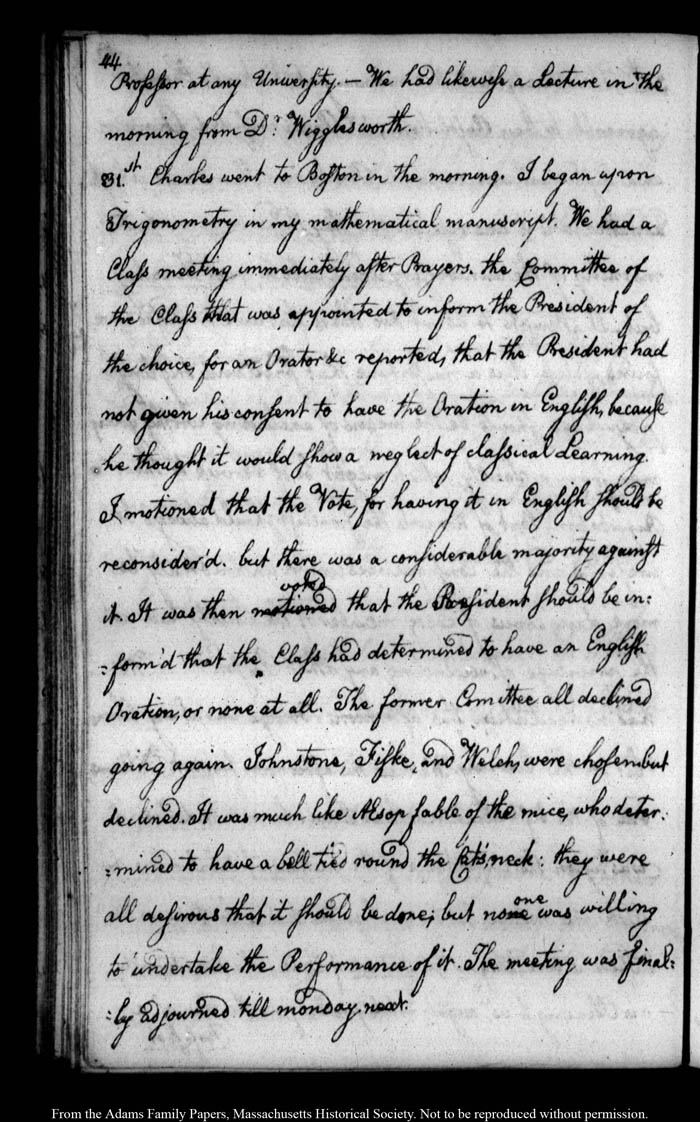 44
Professor at any University. — We had likewise a Lecture in the
morning from Dr. Wigglesworth.
31.st Charles went to Boston in the morning. I began upon
Trigonometry in my mathematical manuscript. We had a
Class meeting immediately after Prayers. the Committee of
the Class that was appointed to inform the President of
the choice, for an Orator &c reported, that the President had
not given his consent to have the Oration in English, because
he thought it would show a neglect of classical Learning.
I motioned that the Vote, for having it in English should be
reconsider'd. but there was a considerable majority against
voted
it. It was then motioned that the President should be in:
:form'd that the Class had determined to have an English
Oration, or none at all. The former Comittee all declined
going again. Johnstone, Fiske, and Welch, were chosen but
declined. It was much like Æsop fable of the mice, who deter:
:mined to have a bell tied round the Cat's neck: they were
one
all desirous that it should be done; but none was willing
to undertake the Performance of it. The meeting was final:
:ly adjourned till monday next.
From the Adams Family Papers, Massachusetts Historical Society. Not to be reproduced without permission.